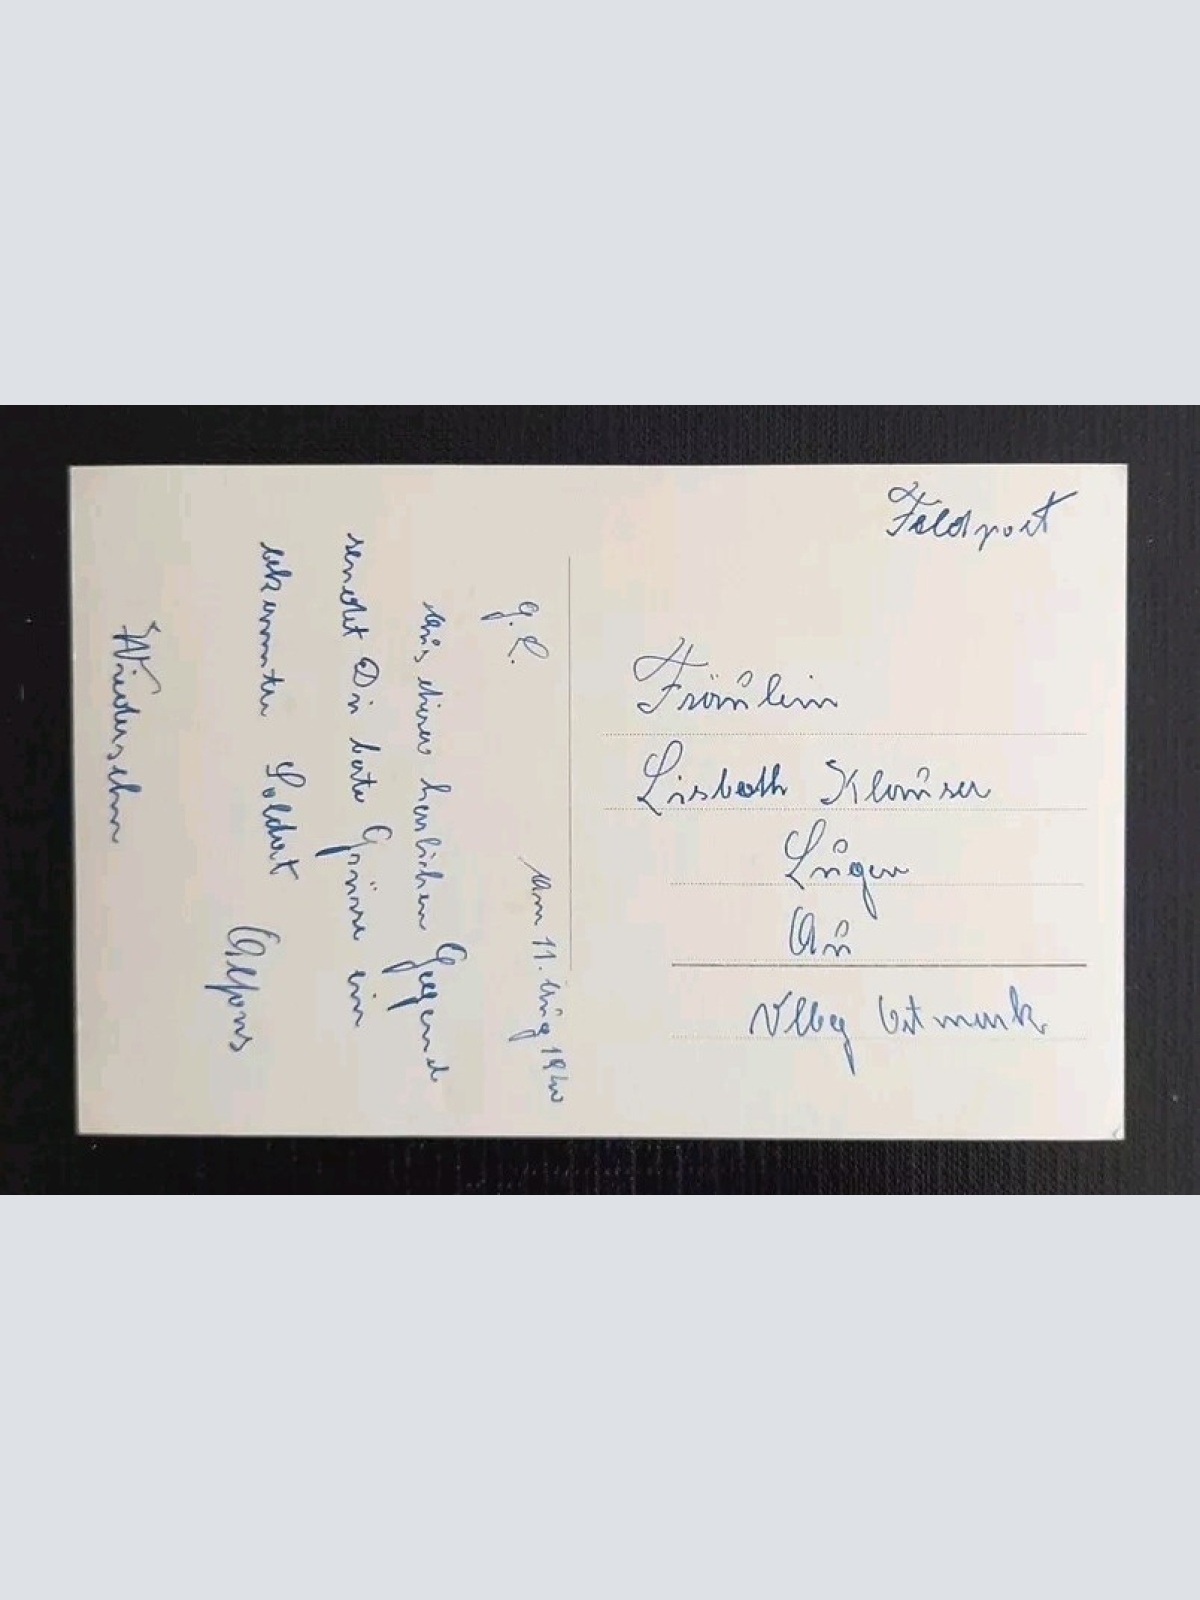 Feldpost
Fräulein
Lisbeth Klauser
Lugen
Au
Vlbg Ostmark
G. L.
Am 11. Aug 1940
Aus einer herlichen Gegend
sendet Dir beste Grüsse ein
bekannter Soldat
Alfons
Wiedersehn